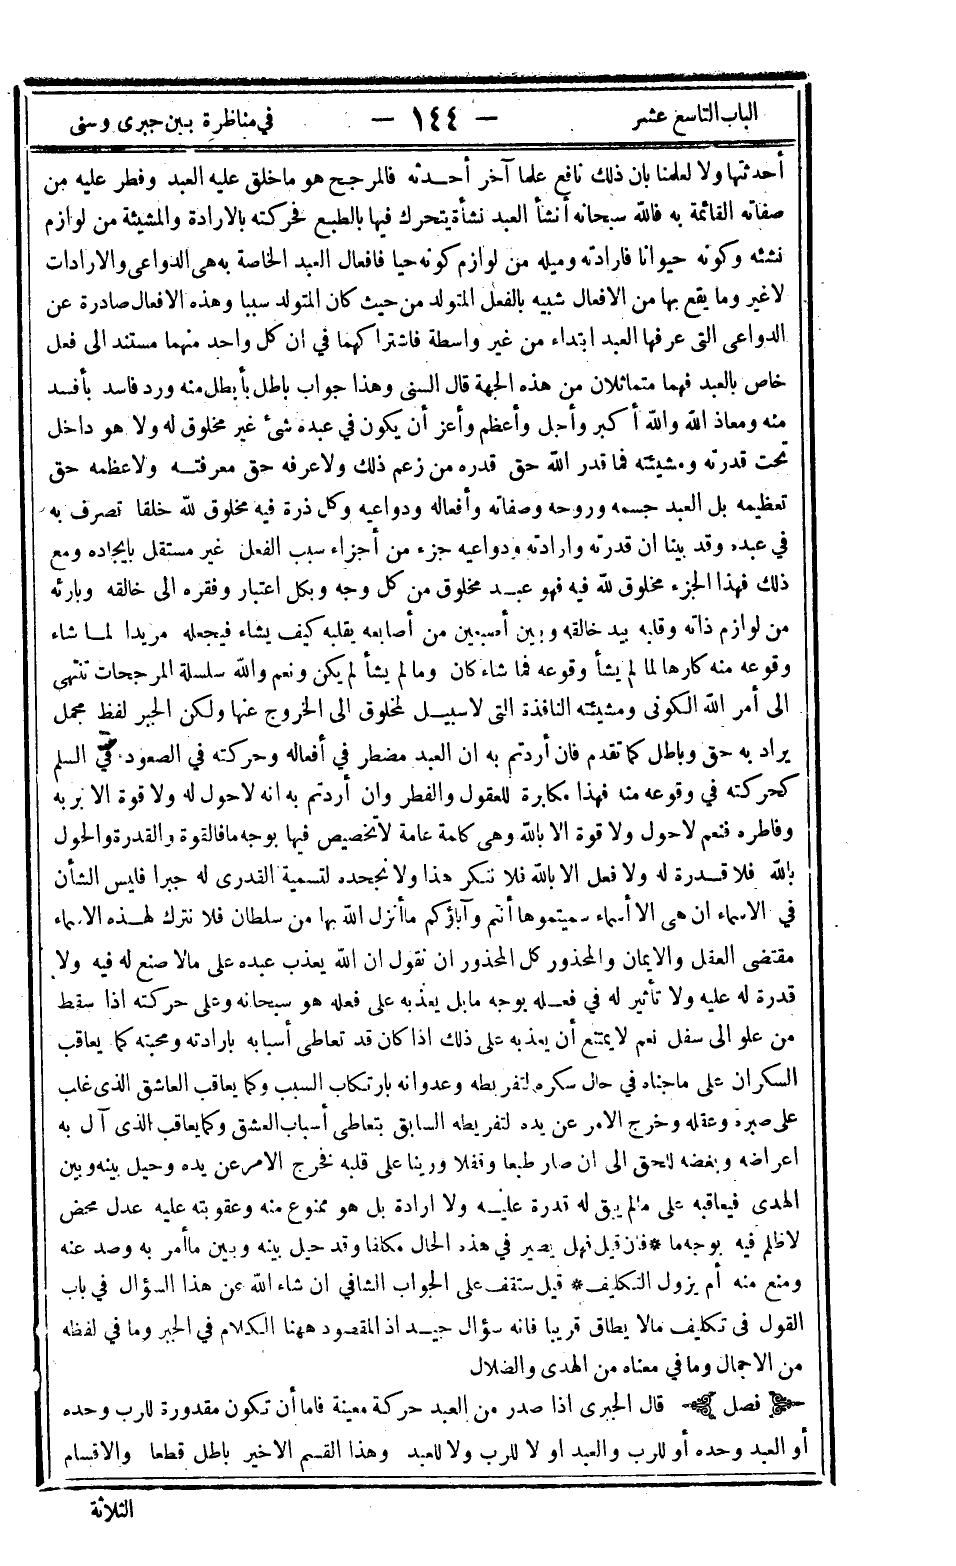 الباب التاسع عشر - ١٤٤ - في مناظرة بين جبرى وسنى
أحدثتها ولا لعلمنا بان ذلك نافع علما آخر أحدثه فالمرجح هو ما خلق عليه العبد وفطر عليه من
صفاته القائمة به فالله سبحانه أنشأ العبد نشأة يتحرك فيها بالطبع فحركته بالارادة والمشيئة من لوازم
نشئه وكونه حيوانا فارادته وميله من لوازم كونه حيا فافعال العبد الخاصة به هى الدواعى والارادات
لاغير وما يقع بها من الافعال شبيه بالفعل المتولد من حيث كان المتولد سببا وهذه الافعال صادرة عن
الدواعى التى عرفها العبد ابتداء من غير واسطة فاشتراكهما في ان كل واحد منهما مستند الى فعل
خاص بالعبد فهما متماثلان من هذه الجهة قال السنى وهذا جواب باطل بأبطل منه ورد فاسد بأفسد
منه ومعاذ الله والله أكبر وأجل وأعظم وأعز أن يكون في عبده شئ غير مخلوق له ولا هو داخل
تحت قدرته ومشيئته فما قدر الله حق قدره من زعم ذلك ولا عرفه حق معرفته ولا عظمه حق
تعظيمه بل العبد جسمه وروحه وصفاته وأفعاله ودواعيه وكل ذرة فيه مخلوق لله خلقا تصرف به
في عبده وقد بينا ان قدرته وارادته ودواعيه جزء من أجزاء سبب الفعل غير مستقل بايجاده ومع
ذلك فهذا الجزء مخلوق لله فيه فهو عبد مخلوق من كل وجه وبكل اعتبار وفقره الى خالقه وبارئه
من لوازم ذاته وقلبه بيد خالقه وبين أصبعين من أصابعه يقلبه كيف يشاء فيجعله مريدا لما شاء
وقوعه منه كارها لما لم يشأ وقوعه فما شاء كان وما لم يشأ لم يكن ونعم والله سلسلة المرجحات تنتهى
الى أمر الله الكونى ومشيئته النافذة التى لا سبيل لمخلوق الى الخروج عنها ولكن الجبر لفظ مجمل
يراد به حق وباطل كما تقدم فان أردتم به ان العبد مضطر في أفعاله وحركته في الصعود في السلم
كحركته في وقوعه منه فهذا مكابرة للعقول والفطر وان أردتم به انه لا حول له ولا قوة الا بربه
وفاطره فنعم لا حول ولا قوة الا بالله وهى كلمة عامة لا تخصيص فيها بوجه ما فالقوة والقدرة والحول
بالله فلا قدرة له ولا فعل الا بالله فلا ننكر هذا ولا نجحده لتسمية القدرى له جبرا فليس الشأن
في الاسماء ان هى الا أسماء سميتموها أنتم وآباؤكم ما أنزل الله بها من سلطان فلا نترك لهذه الاسماء
مقتضى العقل والايمان والمحذور كل المحذور ان نقول ان الله يعذب عبده على مالا صنع له فيه ولا
قدرة له عليه ولا تأثير له في فعله بوجه ما بل يعذبه على فعله هو سبحانه وعلى حركته اذا سقط
من علو الى سفل نعم لا يمتنع أن يعذبه على ذلك اذا كان قد تعاطى أسبابه بارادته ومحبته كما يعاقب
السكران على ما جناه في حال سكره لتفريطه وعدوانه بارتكاب السبب وكما يعاقب العاشق الذى غلب
على صبره وعقله وخرج الامر عن يده لتفريطه السابق بتعاطى أسباب العشق وكما يعاقب الذى آل به
اعراضه وبغضه للحق الى ان صار طبعا وقفلا ورينا على قلبه فخرج الامر عن يده وحيل بينه وبين
الهدى فيعاقبه على مالم يبق له قدرة عليه ولا ارادة بل هو ممنوع منه وعقوبته عليه عدل محض
لا ظلم فيه بوجه ما *فان قيل فهل يصير في هذه الحال مكلفا وقد حيل بينه وبين ما أمر به وصد عنه
ومنع منه أم يزول التكليف* قيل ستقف على الجواب الشافي ان شاء الله عن هذا السؤال في باب
القول فى تكليف مالا يطاق قريبا فانه سؤال جيد اذ المقصود ههنا الكلام في الجبر وما في لفظه
من الاجمال وما في معناه من الهدى والضلال
فصل قال الجبرى اذا صدر من العبد حركة معينة فاما أن تكون مقدورة للرب وحده
أو العبد وحده أو للرب والعبد او لا للرب ولا للعبد وهذا القسم الاخير باطل قطعا والاقسام
الثلاثة